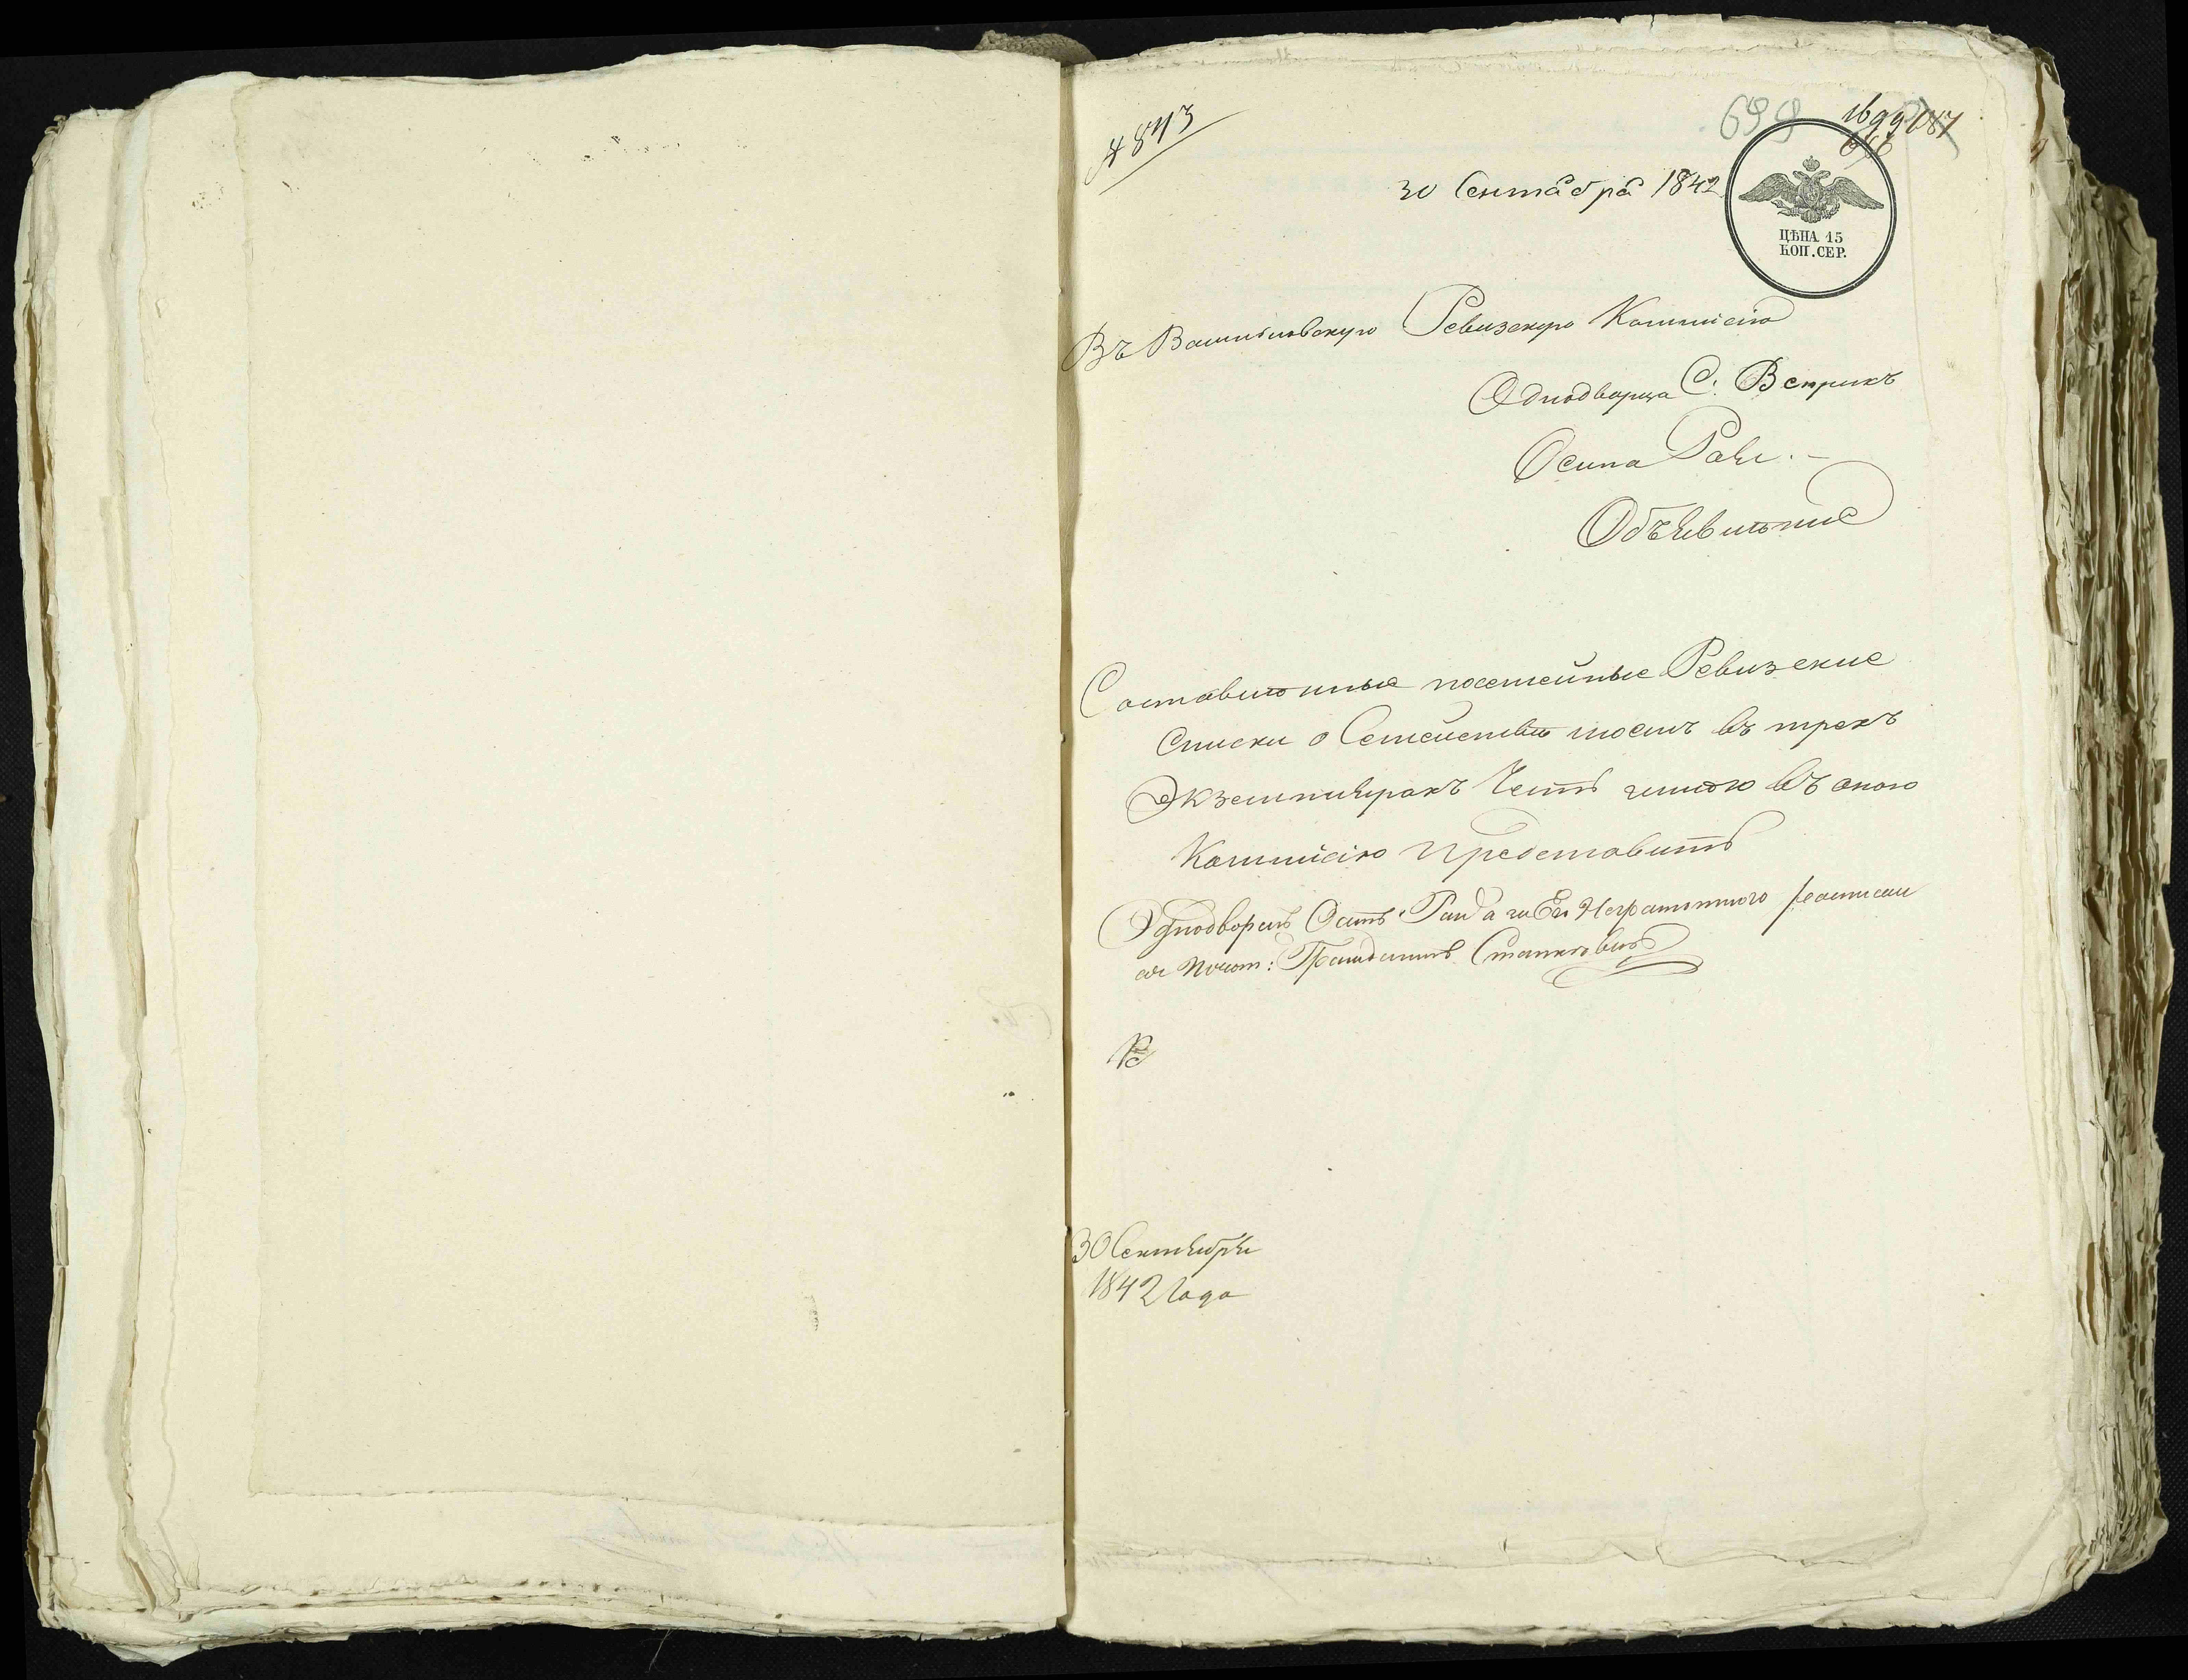 4873
699
1699
30 Сентября 1842
ЦѢНА 15
КОП. СЕР.
Въ Васильковскую Ревизскую Коммисію
Однодворца С. Веприкъ
Осипа
Объявленіе
Составленные посемейные Ревизские
Списки о Семействѣ моемъ въ трехъ
Экземплярахъ Честь имею въ оную
Коммисію Представить
Однодворецъ а за Его Неграмотного росписал
ся Почот: Гражданинъ
30 Сентября
1842 Года